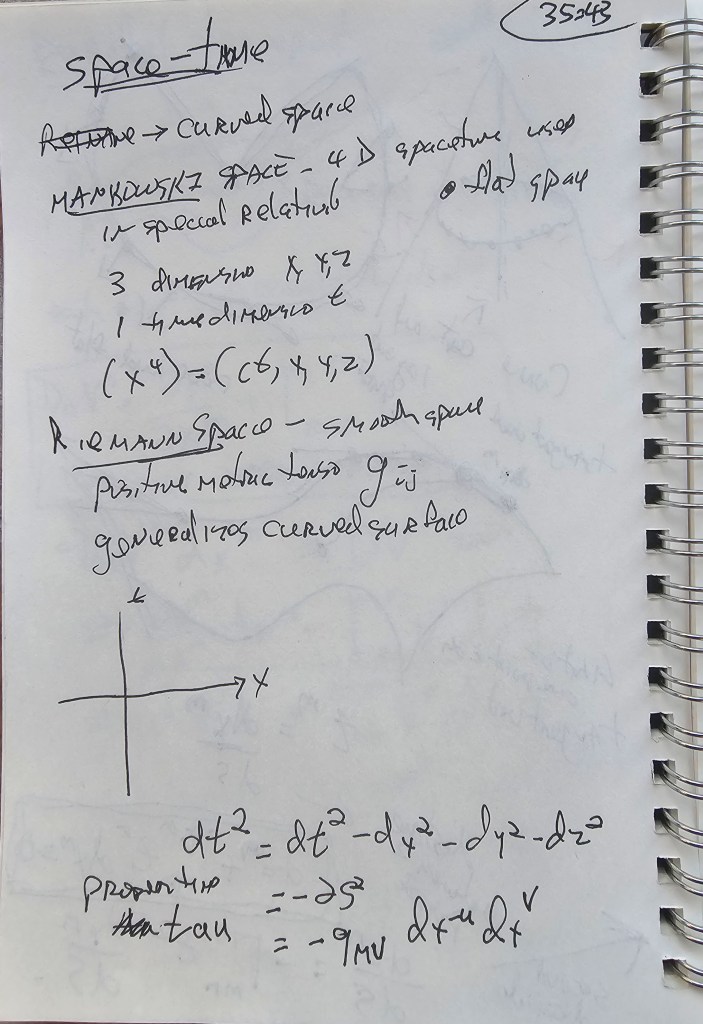 35:43
Space-time
→ Curved space
MANKOWSKI SPACE - 4D spacetime used
in special Relativit • flat space
3 dimensio x, y, z
1 time dimensio t
(x⁴) = (ct, x, y, z)
RIEMANN Space - smooth space
Positive metric tenso g_ij
generalizes curved surface
t
x
dt² = dt² - dx² - dy² - dz²
Proper time = -ds²
tau = -g_MV dx^u dx^v